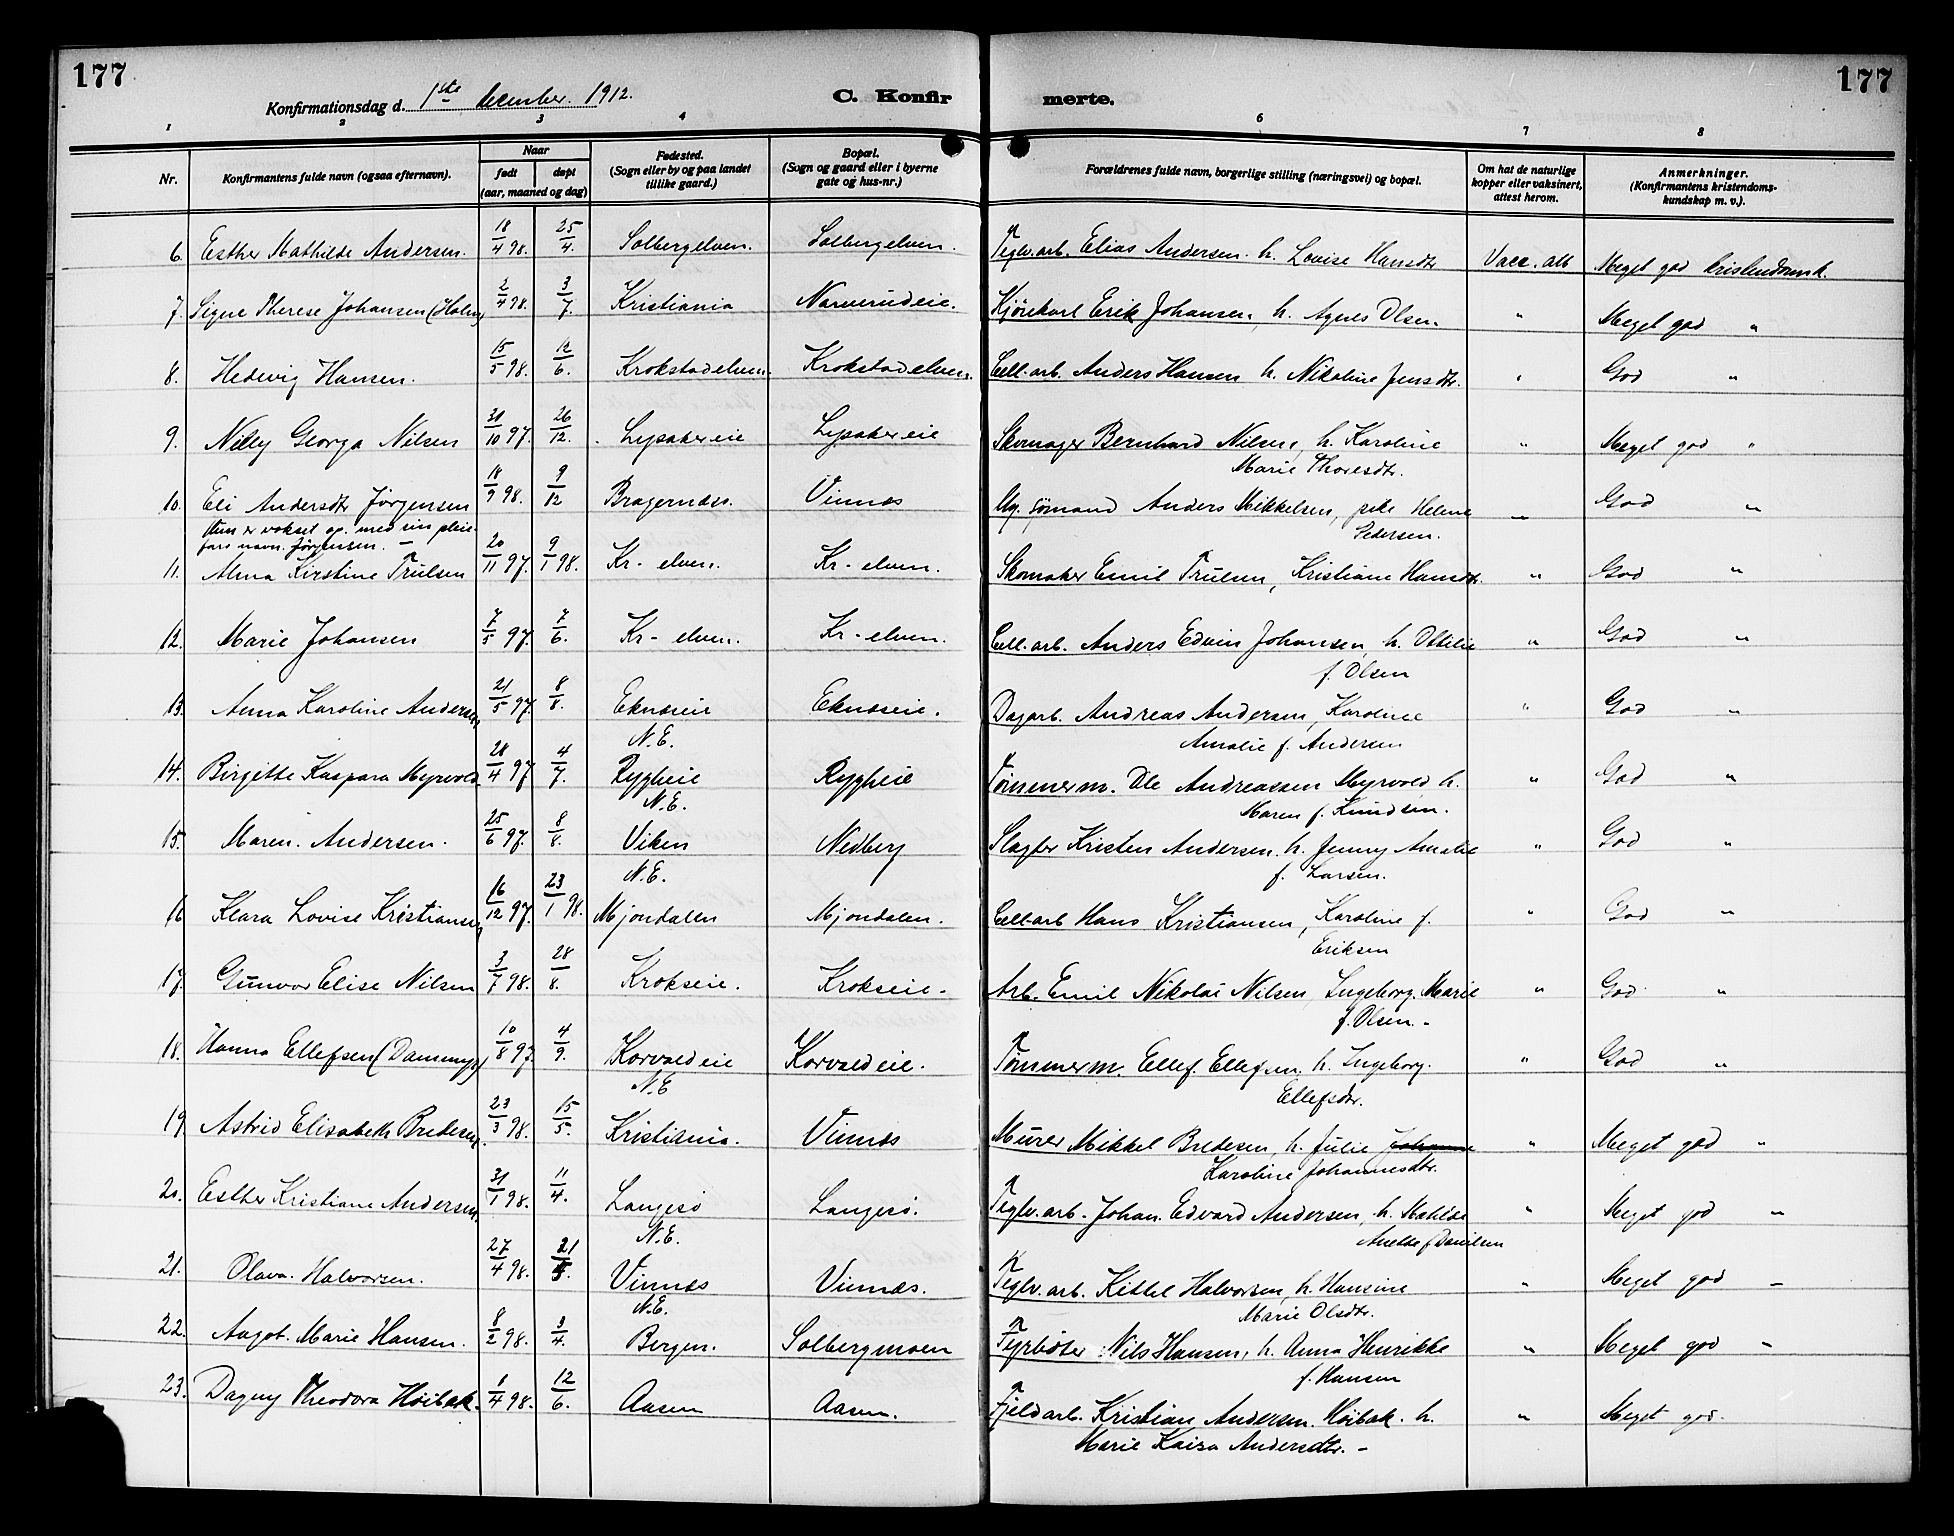 177
177
Konfirmationsdag d. 1ste december 1912.
C. Konfir merte.
1 2 3 4 6 7 8
Nr.
Konfirmantens fulde navn (ogsaa efternavn).
Naar
født døpt
(aar, maaned og dag)
Fødested.
(Sogn eller by og paa landet
tillike gaard.)
Bopæl.
(Sogn og gaard eller i byerne
gate og hus-nr.)
Forældrenes fulde navn, borgerlige stilling (næringsvei) og bopæl.
Om hat de naturlige
kopper eller vaksinert,
attest herom.
Anmerkninger.
(Konfirmantens kristendoms-
kundskap m. v.).
6. Esther Mathilde Andersen. 18/4 98. 25/4. Solbergelven. Solbergelven. Teglv.arb. Elias Andersen. h. Lovise Hansdtr Vacc. att Meget god kristendomsk.
7. Signe Therese Johansen (Holm) 2/4 98. 3/7. Kristiania Narverudeie. Kjørekarl Erik Johansen, h. Agnes Olsen. " Meget god "
8. Hedevig Hansen. 15/5 98. 12/6. Krokstadelven. Krokstadelven. Cell. arb. Anders Hansen h. Nikoline Jensdtr. " God "
9. Nelly Georga Nilsen 31/10 97. 26/12. Lysakereie Lysakereie Skomager Bernhard Nilsen, h. Karoline " Meget god "
Marie Thoresdtr.
10. Eli Andersdtr Jørgensen 18/9 98. 9/12 Bragernæs. Vinnæs Ug. sømand Anders Mikkelsen, pike Helene " God "
Pedersen.
Hun er vokset op. med sin pleie-
fars navn. Jørgensen. —
11. Alma Kirstine Trulsen 20/11 97. 9/1 98. Kr- elven. Kr- elven. Skomaker Emil Trulsen, Kristiane Hansdtr. " God "
12. Marie Johansen 7/5 97. 7/6. Kr- elven. Kr- elven. Cell. arb. Anders Edvin Johansen, h. Ottilie " God "
f. Olsen
13. Anna Karoline Andersen 21/5 97. 8/8. Eknæseie Eknæseie. Dagarb. Andreas Andersen, Karoline " God "
N.E.
Amalie f. Andersen
14. Birgitte Kaspara Myrvold. 28/4 97 4/7. Ryggheie Ryggheie Tømmerm. Ole Andreassen Myrvold h. " God "
N.E.
Maren f. Knudsen.
15. Maren. Andersen. 25/6 97. 8/8. Viken Nedberg Slagter Kristen Andersen. h. Jenny Amalie " God "
N.E.
f. Larsen.
16 Klara Lovise Kristiansen 16/12 97. 23/1 98. Mjøndalen Mjøndalen. Cell. arb Hans Kristiansen, Karoline f. " God "
Eriksen
17. Gunvor Elise Nilsen 3/7 98. 28/8. Krokseie. Krokseie. Arb. Emil Nikolai Nilsen, Ingeborg. Marie " God "
f. Olsen. -
18. Hanna Ellefsen (Dammyr) 10/8 97. 4/9. Korvaldeie Korvaldeie. Tømmerm. Ellef. Ellefsen. h. Ingeborg. " God "
N.E
Ellefsdtr.
19. Astrid Elisabeth Bredesen. 23/3 98. 15/5. Kristiania. Vinnæs Murer Mikkel Bredesen, h. Julie Johanne " Meget god "
Karoline Johannesdtr.
20. Esther Kristiane Andersen. 31/1 98. 11/4. Langesø Langesø. Teglv.arb. Johan. Edvard Andersen, h. Matilde " Meget god "
N.E.
Anette f Danielsen
21. Olava. Halvorsen. 27/4 98. 21/5. Vinnæs Vinnæs. Teglv. arb. Kittel Halvorsen, h. Hansine " Meget god "
N.E.
Marie Olsdtr.
22. Aagot. Marie Hansen. 8/2 98. 3/4. Bergen. Solbergmoen Fyrbøter Nils Hansen, h. Anna Henrikke " Meget god "
f. Hansen
23. Dagny Theodora Høibak. 1/4 98. 12/6. Aasen Aasen. Fjeldarb. Kristian Andersen Høibak. h. " Meget god.
Marie Kaisa Andersdtr. -